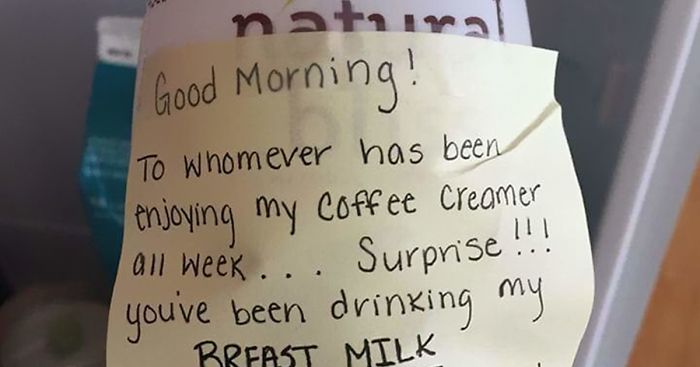 natural
Good Morning!
To whomever has been
enjoying my Coffee Creamer
all week . . . Surprise!!!
you've been drinking my
BREAST MILK